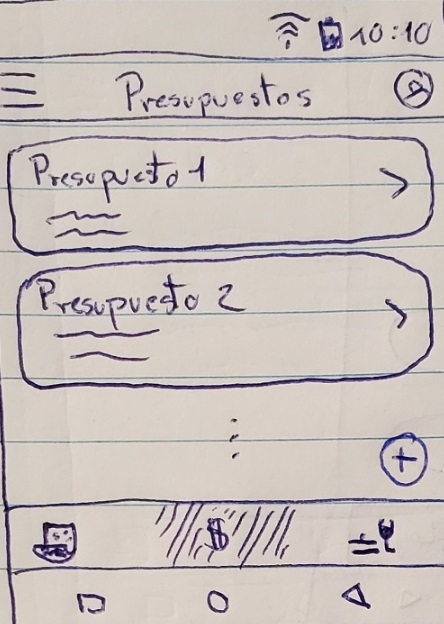 10:10
Presupuestos
Presupuesto 1
Presupuesto 2
+
$